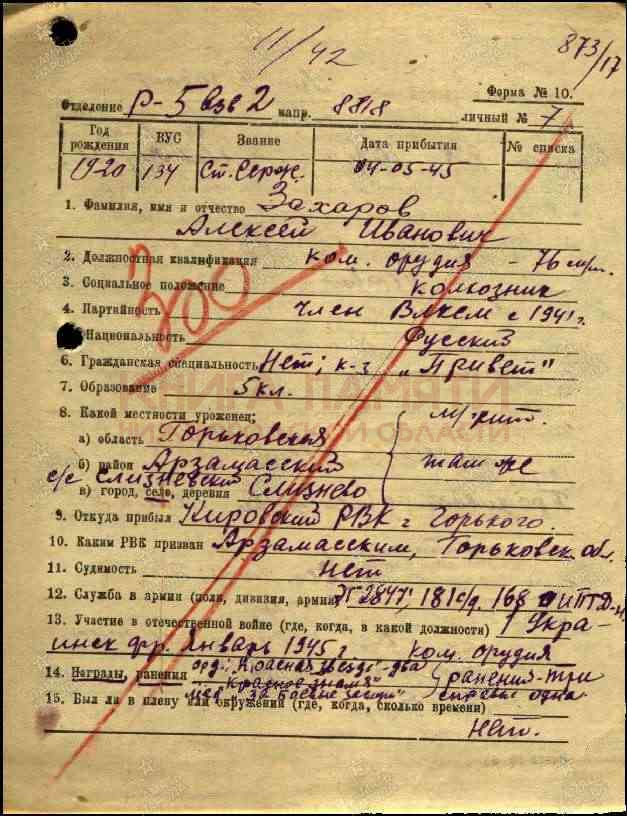 11/42
873/17
Форма № 10.
Отделение Р-5 взв 2 напр. 8818 личный № 7
Год рождения ВУС Звание Дата прибытия № списка
1920 134 Ст. Серж. 04-05-45
1. Фамилия, имя и отчество Захаров
Алексей Иванович
2. Должностная квалификация ком. орудия - 76 м/м.
300
3. Социальное положение колхозник
4. Партийность член ВЛКСМ с 1941 г.
5. Национальность Русский
6. Гражданская специальность Нет; к-з „Привет"
7. Образование 5 кл.
КНИГА ПАМЯТИ
НИЖЕГОРОДСКОЙ ОБЛАСТИ
8. Какой местности уроженец; м/жит.
а) область Горьковская
б) район Арзамасский там же
с/с Слизневский
в) город, село, деревня Слизнево
9. Откуда прибыл Кировский РВК г Горького.
10. Каким РВК призван Арзамасским, Горьковск. обл.
11. Судимость нет
12. Служба в армии (полк, дивизия, армия) ЭГ 2847, 181 с/д, 168 ОИПТД-н.
13. Участие в отечественной войне (где, когда, в какой должности) 1 Укра-
инск фр. Январь 1945 г. ком. орудия
14. Награды, ранения орд: „Красная звезда"-два
„Красное знамя" ранения-три
мед. „За боевые заслуги" справка одна
15. Был ли в плену или окружении (где, когда, сколько времени)
Нет.